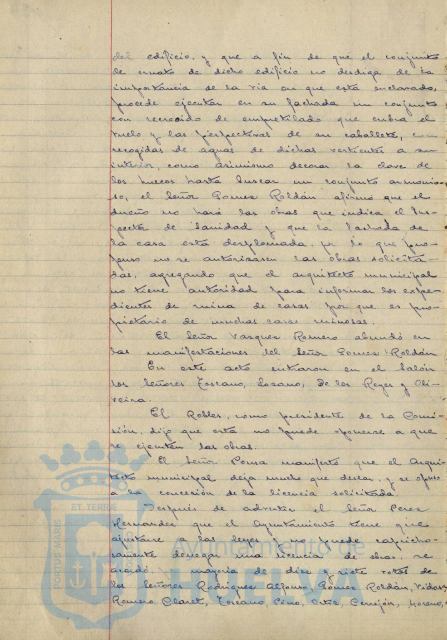 del edificio, y que a fin de que el conjunto
de ornato de dicho edificio no desdiga de la
importancia de la vía en que está enclavado,
procede ejecutar en su fachada un conjunto
con recrecido de empretilado que cubra el
vuelo y las perspectivas de su caballete, con
recogidas de aguas de dichas vertientes a su
interior, como asimismo decorar la clave de
los huecos hasta buscar un conjunto armonio-
so, el Señor Gomez Roldán afirmó que el
dueño no hará las obras que indica el Ins-
pector de Sanidad y que la fachada de
la casa está desplomada, por lo que pro-
puso no se autorizasen las obras solicita-
das, agregando que el arquitecto municipal
no tiene autoridad para informar los expe-
dientes de ruina de casas por que es pro-
pietario de muchas casas ruinosas.
El Señor Vazquez Romero abundó en
las manifestaciones del Señor Gomez Roldán
En este acto entraron en el Salón
los Señores Toscano, Lozano, de los Reyes y Oli-
veira.
El Robles, como presidente de la Comi-
sión, dijo que esta no puede oponerse a que
se ejecuten las obras.
El Señor Ponce manifestó que el Arqui-
tecto municipal deja mucho que desear, y se opuso
a la concesión de la licencia solicitada
Después de advertir el Señor Perez
Hernandez que el Ayuntamiento tiene que
ajustarse a las leyes y no puede caprichosamente
denegar una licencia de obras, se
acordó, mayoría de diez y siete votos de
los Señores Rodriguez Alfonso, Gómez Roldán, Vidosa
Romero, Claret, Toscano, Pino, Ortiz, Cerrejón, Moreno,
PORTUS MARIS
ET TERRE
Ayuntamiento de
HUELVA